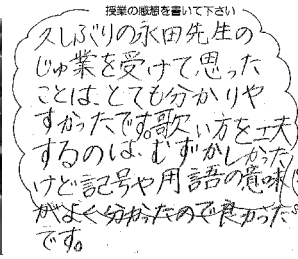 授業の感想を書いて下さい
久しぶりの永田先生の
じゅ業を受けて思った
ことは、とても分かりや
すかったです。歌い方を工夫
するのは、むずかしかった
けど記号や用語の意味
がよく分かったので良かった
です。